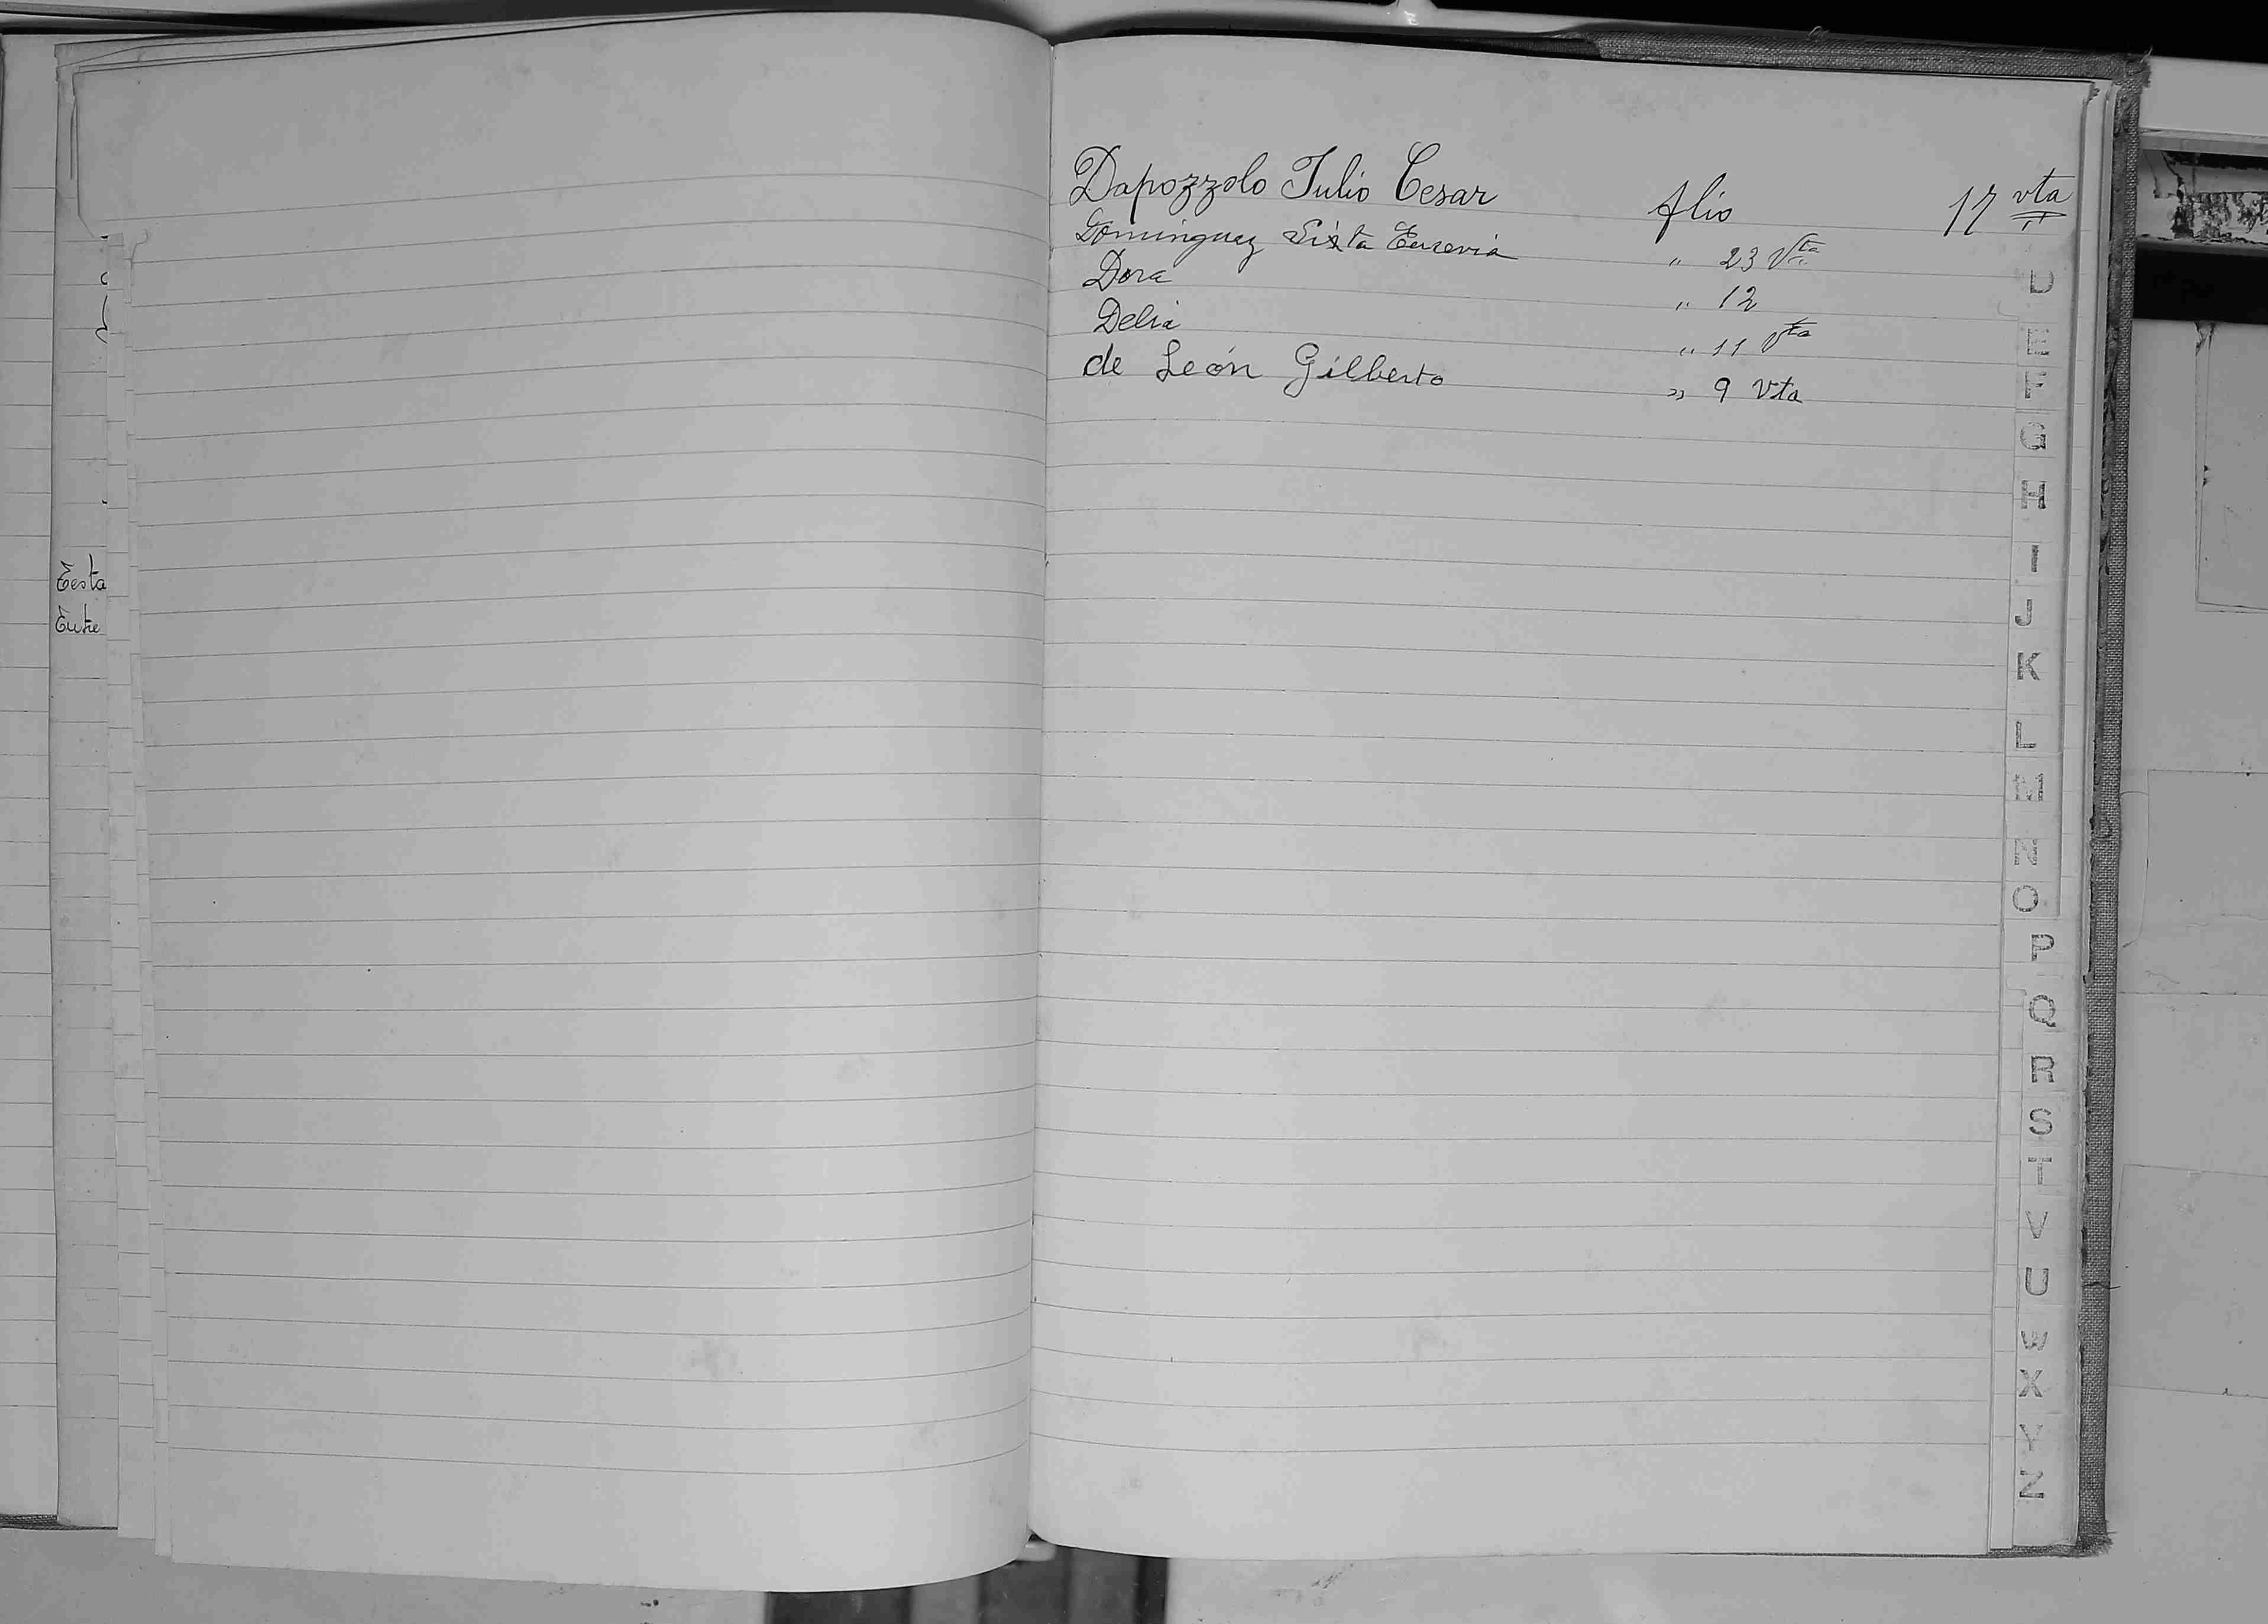 Dapozzolo Julio Cesar flio 17 vta
Dominguez Sixta Eusevia " 23 Vta
Dora " 12
Delia " 11 Vta
de León Gilberto " 9 Vta
D
E
F
G
H
I
J
K
L
M
N
O
P
Q
R
S
T
V
U
W
X
Y
Z
Testa
Entre